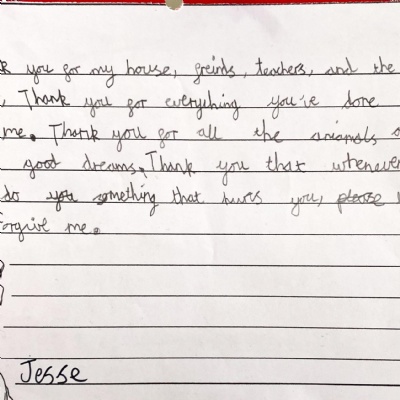 k you for my house, freinds, teachers, and the
, Thank you for everything you've done
me. Thank you for all the animals
good dreams. Thank you that whenever
do something that hurts you, please
forgive me.
Jesse